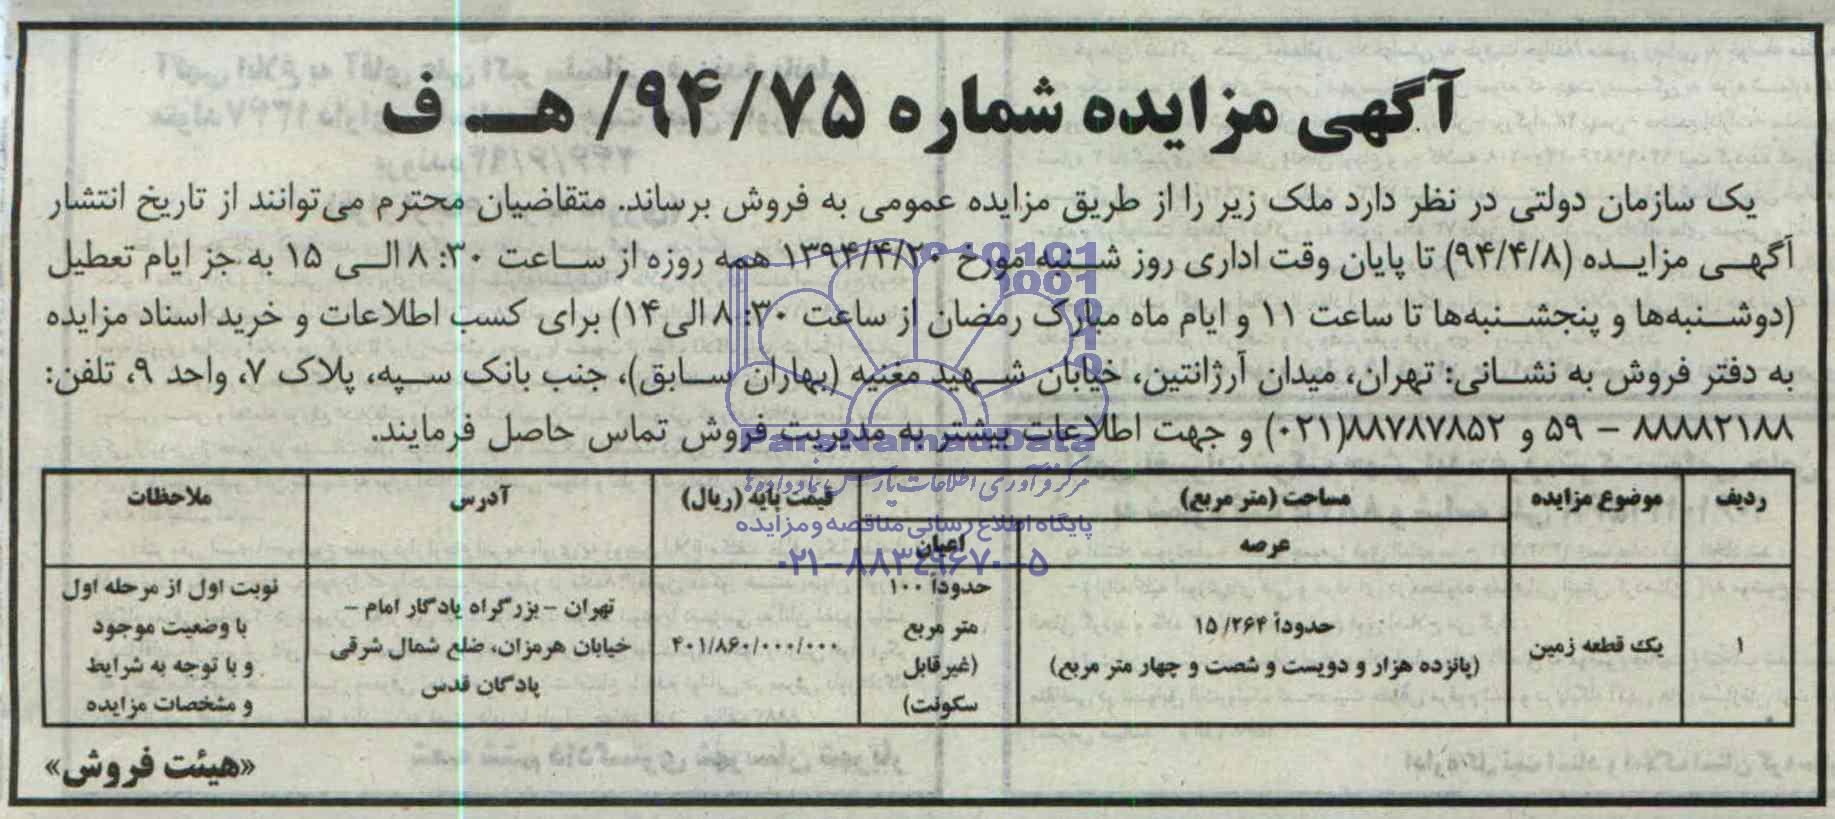 آگهی مزایده شماره ۹۴/۷۵/ هـ ف
یک سازمان دولتی در نظر دارد ملک زیر را از طریق مزایده عمومی به فروش برساند. متقاضیان محترم می‌توانند از تاریخ انتشار
آگهی مزایده (۹۴/۴/۸) تا پایان وقت اداری روز شنبه مورخ ۱۳۹۴/۴/۲۰ همه روزه از ساعت ۸:۳۰ الی ۱۵ به جز ایام تعطیل
(دوشنبه‌ها و پنجشنبه‌ها تا ساعت ۱۱ و ایام ماه مبارک رمضان از ساعت ۸:۳۰ الی۱۴) برای کسب اطلاعات و خرید اسناد مزایده
به دفتر فروش به نشانی: تهران، میدان آرژانتین، خیابان شهید مغنیه (بهاران سابق)، جنب بانک سپه، پلاک ۷، واحد ۹، تلفن:
۸۸۸۸۲۱۸۸ – ۵۹ و ۸۸۷۸۷۸۵۲(۰۲۱) و جهت اطلاعات بیشتر به مدیریت فروش تماس حاصل فرمایند.
ردیف موضوع مزایده مساحت (متر مربع) قیمت پایه (ریال) آدرس ملاحظات
عرصه اعیان
۱ یک قطعه زمین
حدوداً ۱۵/۲۶۴
(پانزده هزار و دویست و شصت و چهار متر مربع)
حدوداً ۱۰۰
متر مربع
(غیرقابل
سکونت)
۴۰۱/۸۶۰/۰۰۰/۰۰۰
تهران – بزرگراه یادگار امام –
خیابان هرمزان، ضلع شمال شرقی
پادگان قدس
نوبت اول از مرحله اول
با وضعیت موجود
و با توجه به شرایط
و مشخصات مزایده
«هیئت فروش»
ParsNamadData
مرکز فرآوری اطلاعات پارس نماد داده‌ها
پایگاه اطلاع رسانی مناقصه و مزایده
۰۲۱-۸۸۳۴۹۶۷۰-۵